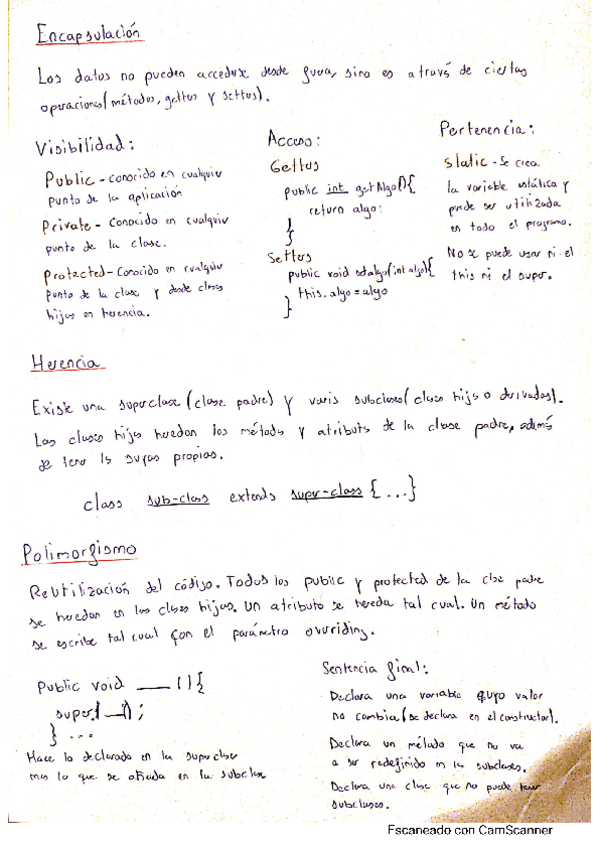 Encapsulación
Los datos no pueden accederse desde fuera, sino es a través de ciertas
operaciones (métodos, getters y setters).
Visibilidad:
Public - conocido en cualquier
punto de la aplicación
Private - Conocido en cualquier
punto de la clase.
Protected - Conocido en cualquier
punto de la clase y desde clases
hijas en herencia.
Acceso:
Getters
public int getAlgo(){
return algo;
}
Setters
public void setalgo(int algo){
this.algo = algo
}
Pertenencia:
static - Se crea
la variable estática y
puede ser utilizada
en todo el programa.
No se puede usar ni el
this ni el super.
Herencia
Existe una superclase (clase padre) y varias subclases (clases hijas o derivadas).
Las clases hijas heredan los métodos y atributos de la clase padre, además
de tener las suyas propias.
class sub-class extends super-class {...}
Polimorfismo
Reutilización del código. Todos los public y protected de la clase padre
se heredan en las clases hijas. Un atributo se hereda tal cual. Un método
se escribe tal cual con el parámetro overriding.
Public void ___ () {
super.(___)();
} ...
Hace lo declarado en la superclase
mas lo que se añada en la subclase
Sentencia final:
Declara una variable cuyo valor
no cambia (se declara en el constructor).
Declara un método que no va
a ser redefinido en las subclases.
Declara una clase que no puede tener
subclases.
Escaneado con CamScanner